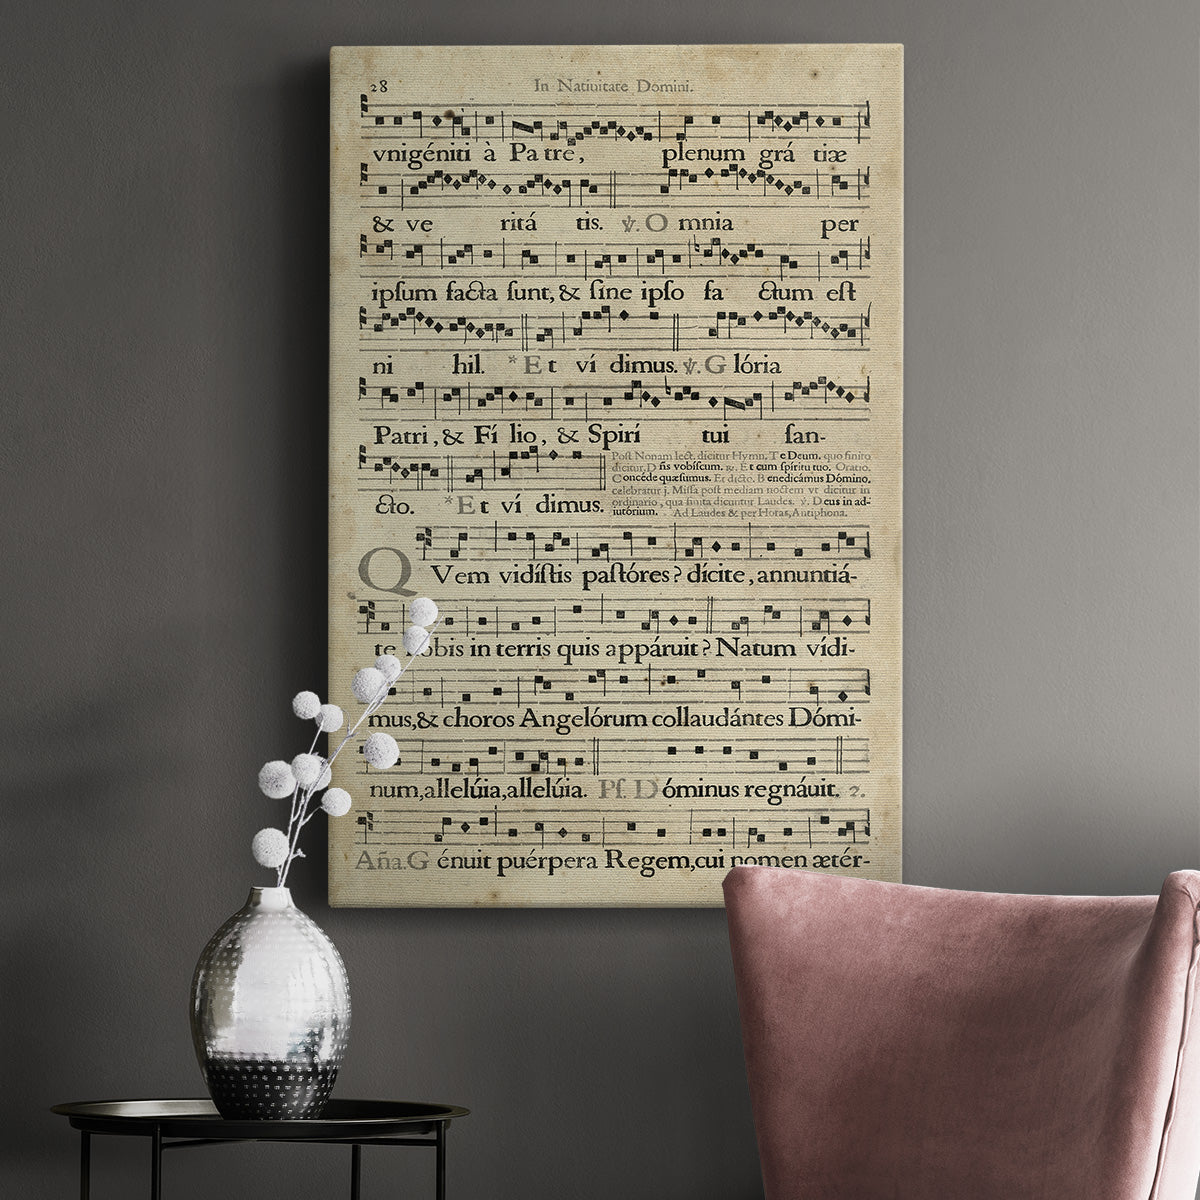 28 In Natiuitate Domini.
vnigéniti à Pa tre, plenum grá tiæ
& ve ritá tis. ℣. O mnia per
ipſum facta ſunt, & ſine ipſo fa ctum eſt
ni hil. * Et ví dimus. ℣. G lória
Patri, & Fí lio, & Spirí tui ſan-
cto. * Et ví dimus.
Poſt Nonam lect. dicitur Hymn. Te Deum. quo finito
dicitur, D ñs vobíſcum. ℟. Et cum ſpíritu tuo. Oratio.
Concéde quæſumus. Et dicto. B enedicámus Dómino.
celebratur j. Miſſa poſt mediam noctem vt dicitur in
ordinario, qua finita dicuntur Laudes. ℣. Deus in ad-
iutórium. Ad Laudes & per Horas, Antiphona.
QVem vidíſtis paſtóres? dícite, annuntiá-
te nobis in terris quis appáruit? Natum vídi-
mus, & choros Angelórum collaudántes Dómi-
num, allelúia, allelúia. Pſ. Dóminus regnáuit. 2.
Aña. G énuit puérpera Regem, cui nomen ætér-